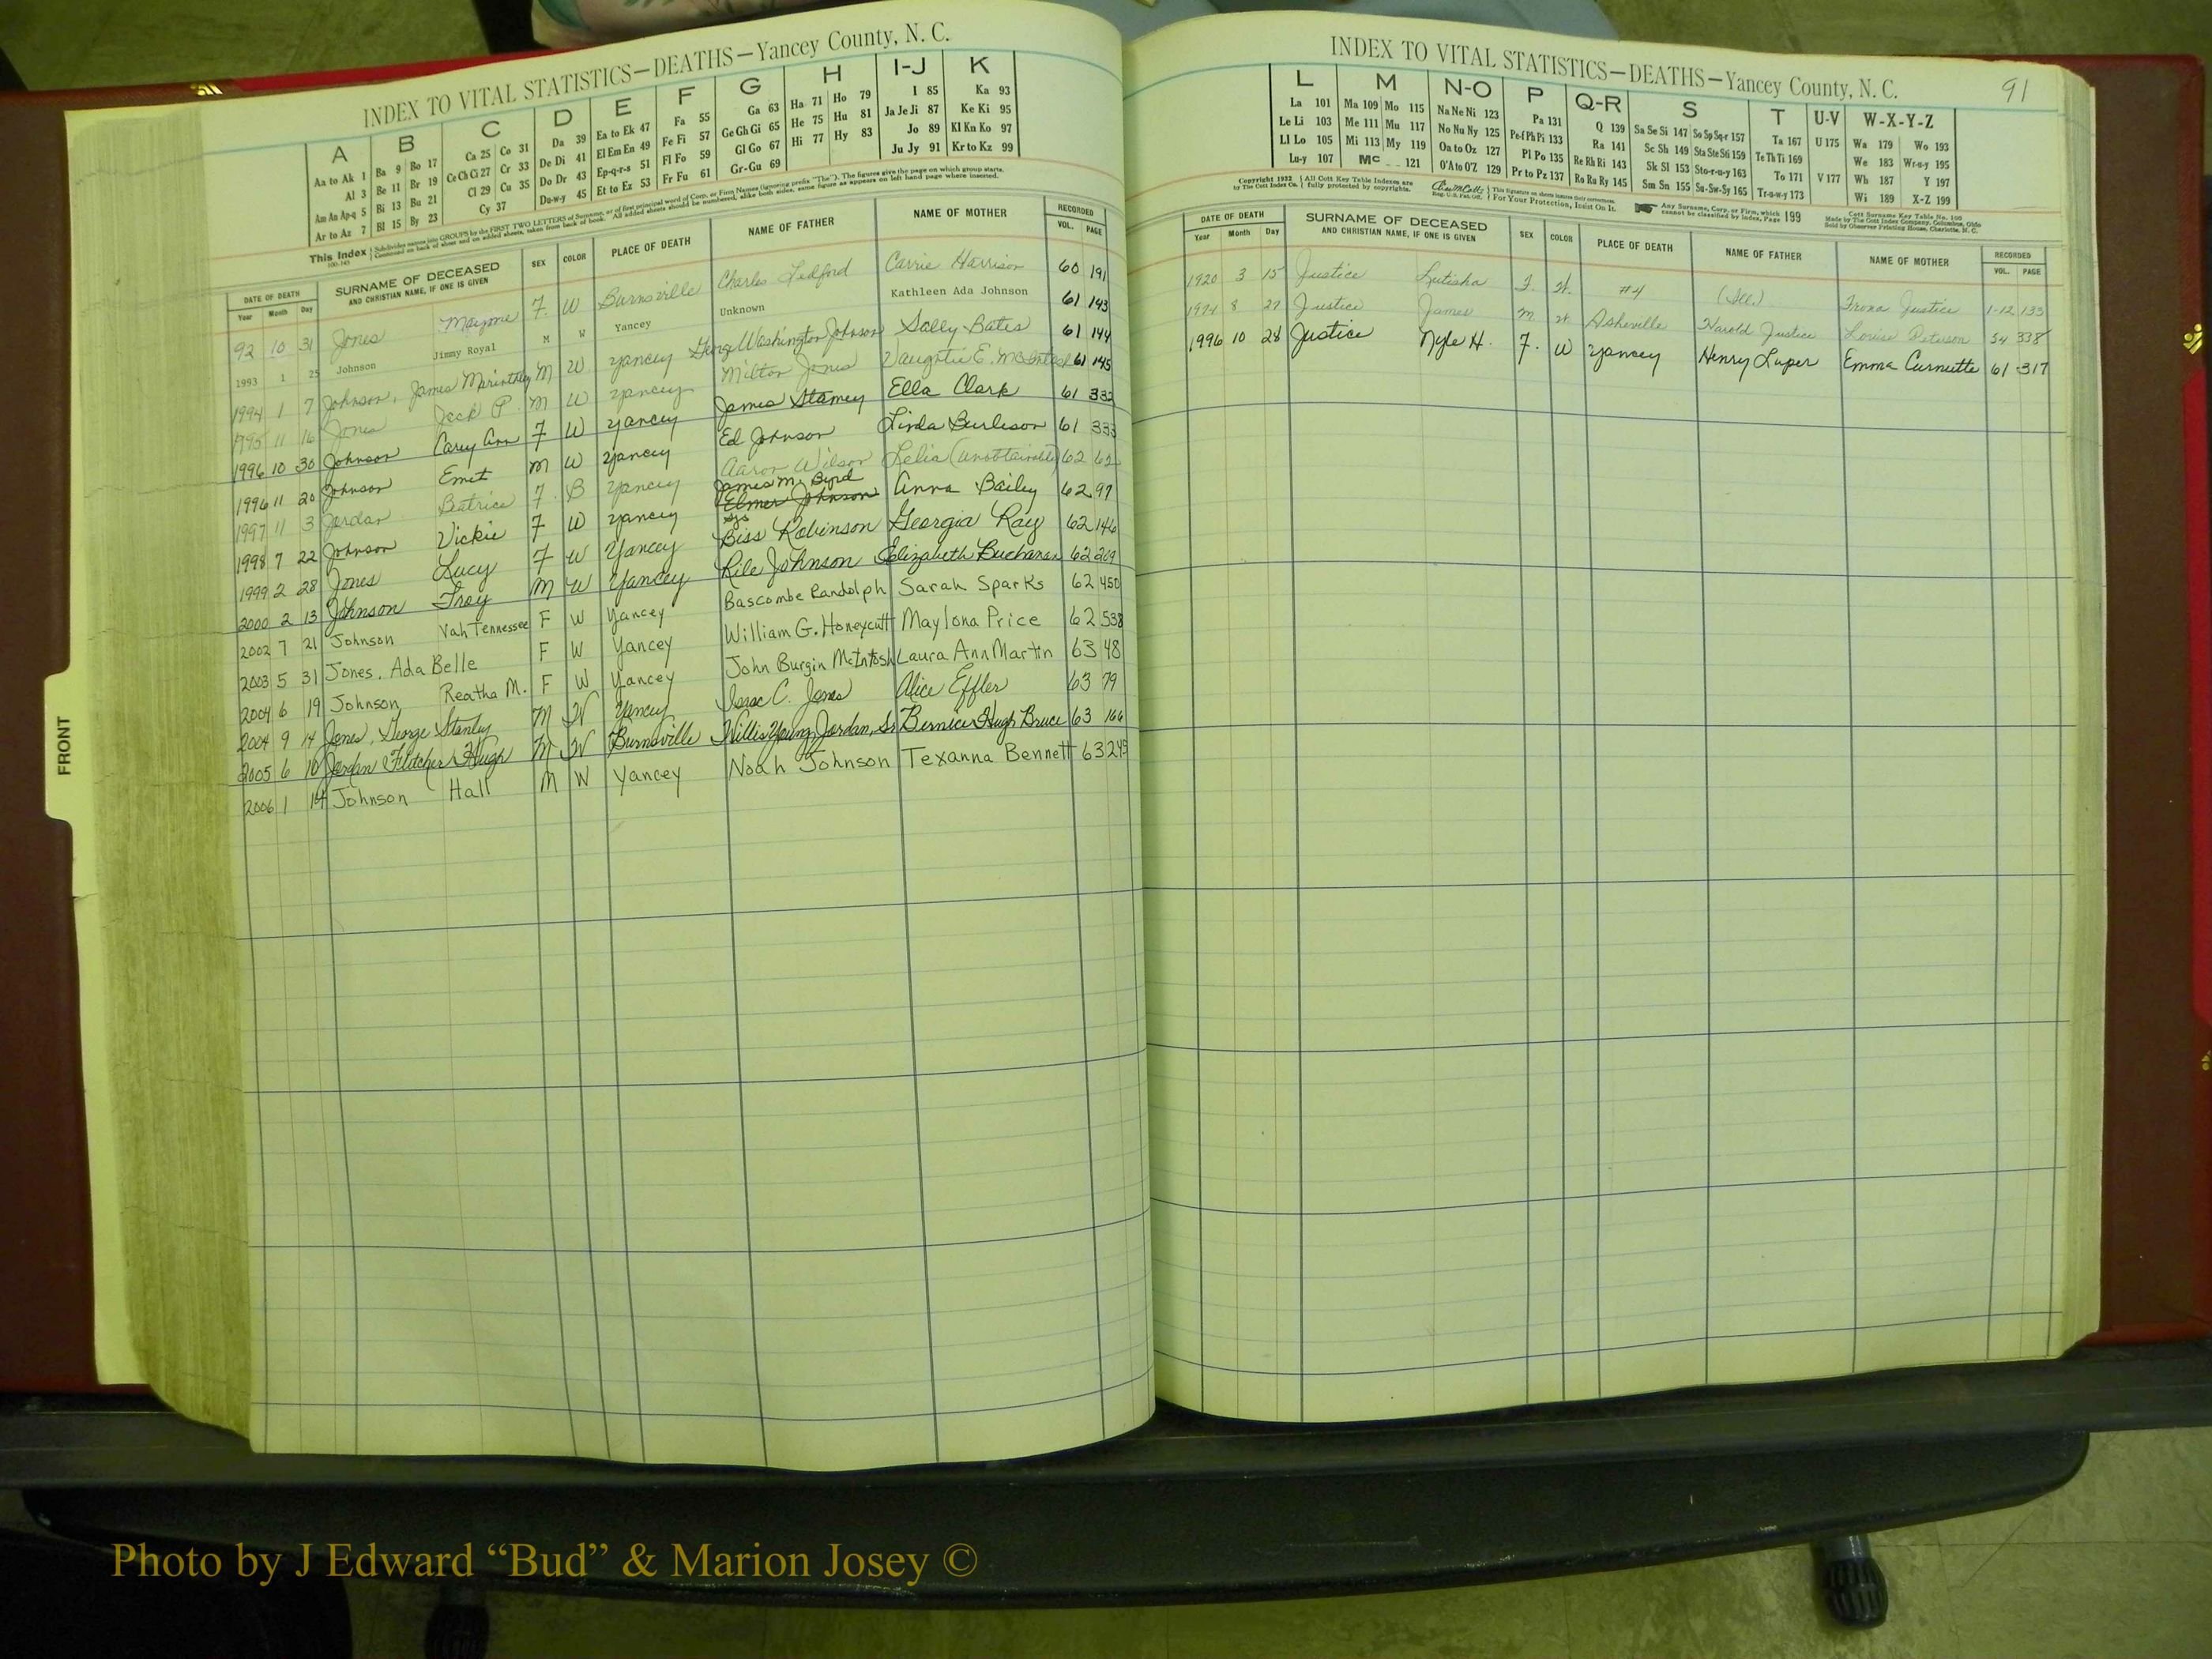 INDEX TO VITAL STATISTICS—DEATHS—Yancey County, N. C.
A B C D E F G H I-J K
Aa to Ak 1 Ba 9 Bo 17 Ca 25 Co 31 Da 39 Ea to Ek 47 Fa 55 Ga 63 Ha 71 Ho 79 I 85 Ka 93
Al 3 Be 11 Br 19 Ce Ch Ci 27 Cr 33 De Di 41 El Em En 49 Fe Fi 57 Ge Gh Gi 65 He 75 Hu 81 Ja Je Ji 87 Ke Ki 95
Am An Ap-q 5 Bi 13 Bu 21 Cl 29 Cu 35 Do Dr 43 Ep-q-r-s 51 Fl Fo 59 Gl Go 67 Hi 77 Hy 83 Jo 89 Kl Kn Ko 97
Ar to Az 7 Bl 15 By 23 Cy 37 Du-w-y 45 Et to Ez 53 Fr Fu 61 Gr-Gu 69 Ju Jy 91 Kr to Kz 99
This Index
DATE OF DEATH SURNAME OF DECEASED SEX COLOR PLACE OF DEATH NAME OF FATHER NAME OF MOTHER RECORDED
Year Month Day AND CHRISTIAN NAME, IF ONE IS GIVEN VOL. PAGE
92 10 31 Jones Mayme F. W Burnsville Charles Ledford Carrie Harrison 60 191
1993 1 25 Johnson Jimmy Royal M W Yancey Unknown Kathleen Ada Johnson 61 143
1994 1 7 Johnson, James M W Yancey George Washington Johnson Sally Bates 61 144
1995 11 16 Jones Jack P. M W Yancey Milton Jones E. McIntosh 61 145
1996 10 30 Johnson Carey Ann F W Yancey James Stamey Ella Clark 61 332
1996 11 20 Johnson Emet M W Yancey Ed Johnson Linda Burleson 61 333
1997 11 3 Jordan Beatrice F. B Yancey Aaron Wilson Lelia (unobtainable) 62 62
James M. Byrd
1998 7 22 Johnson Vickie F W Yancey Elmer Johnson Anna Bailey 62 97
1999 2 28 Jones Lucy F W Yancey Biss Robinson Georgia Ray 62 146
2000 2 13 Johnson Troy M W Yancey Rile Johnson Elizabeth Buchanan 62 269
2002 7 21 Johnson Vah Tennessee F W Yancey Bascombe Randolph Sarah Sparks 62 450
2003 5 31 Jones, Ada Belle F W Yancey William G. Honeycutt Maylona Price 62 538
2004 6 19 Johnson Reatha M. F W Yancey John Burgin McIntosh Laura Ann Martin 63 48
2004 9 14 Jones, George Stanley M W Yancey Isaac C. Jones Alice Effler 63 79
2005 6 10 Jordan Fletcher Hugh M W Burnsville Willis Young Jordan, Sr Bernice Hugh Bruce 63 166
2006 1 14 Johnson Hall M W Yancey Noah Johnson Texanna Bennett 63 245
FRONT
INDEX TO VITAL STATISTICS—DEATHS—Yancey County, N. C.
91
L M N-O P Q-R S T U-V W-X-Y-Z
La 101 Ma 109 Mo 115 Na Ne Ni 123 Pa 131 Q 139 Sa Se Si 147 So Sp Sq-r 157 Ta 167 U 175 Wa 179 Wo 193
Le Li 103 Me 111 Mu 117 No Nu Ny 125 Pe-f Ph Pi 133 Ra 141 Sc Sh 149 Sta Ste Sti 159 Te Th Ti 169 We 183 Wr-u-y 195
Ll Lo 105 Mi 113 My 119 Oa to Oz 127 Pl Po 135 Re Rh Ri 143 Sk Sl 153 Sto-r-u-y 163 To 171 V 177 Wh 187 Y 197
Lu-y 107 Mc 121 O'A to O'Z 129 Pr to Pz 137 Ro Ru Ry 145 Sm Sn 155 Su-Sw-Sy 165 Tr-u-w-y 173 Wi 189 X-Z 199
Copyright 1922 by The Cott Index Co. All Cott Key Table Indexes are fully protected by copyrights. For Your Protection, Insist On It. Any Surname, Corp. or Firm, which cannot be classified by index, Page 199
DATE OF DEATH SURNAME OF DECEASED SEX COLOR PLACE OF DEATH NAME OF FATHER NAME OF MOTHER RECORDED
Year Month Day AND CHRISTIAN NAME, IF ONE IS GIVEN VOL. PAGE
1920 3 15 Justice Lutisha F. W. #4 (Ill.) Justice 1-12 133
1974 8 27 Justice James M W Asheville Harold Justice Louise Peterson 54 338
1996 10 28 Justice Nyle H. F. W Yancey Henry Luper Emma Curnutte 61 317
Photo by J Edward “Bud” & Marion Josey ©